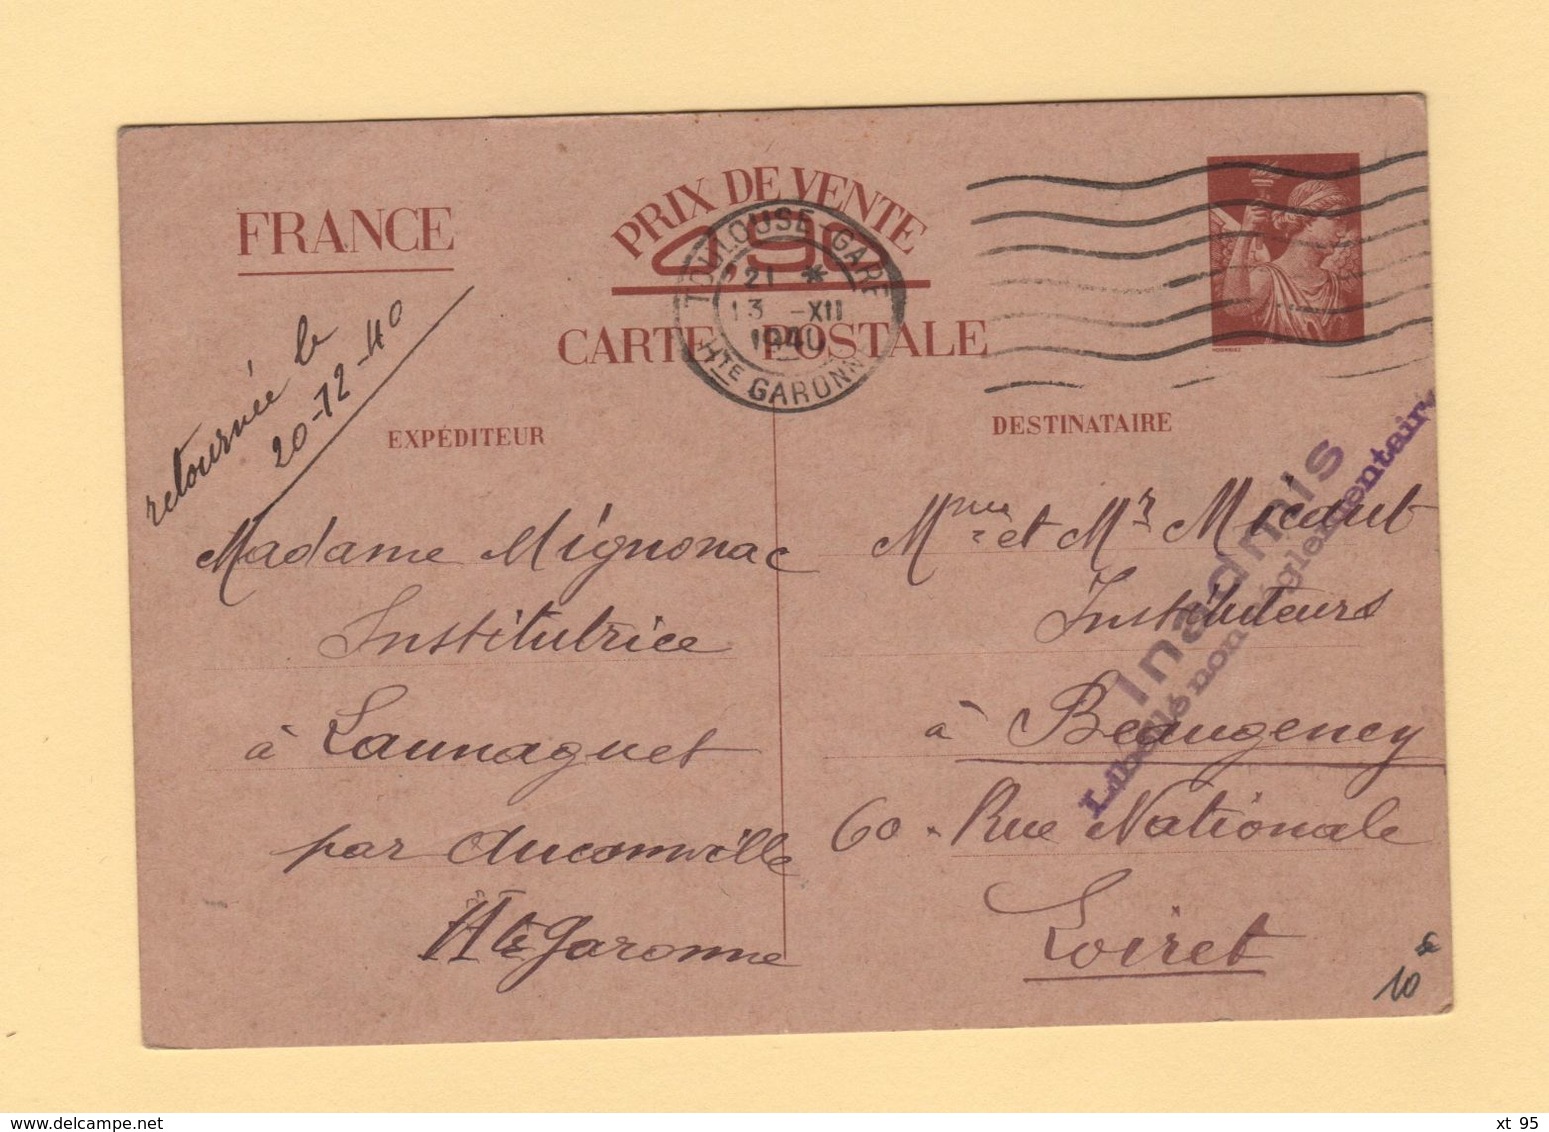 FRANCE
PRIX DE VENTE
0,90
CARTE POSTALE
TOULOUSE-GARE
21 *
13 -XII
1940
HTE GARONNE
retournée le
20-12-40
EXPÉDITEUR
Madame Mignonac
Institutrice
à Launaguet
par Aucamville
Hte Garonne
DESTINATAIRE
Mme et Mr Micaut
Instituteurs
à Beaugency
60. Rue Nationale
Loiret
Inadmis
Libellé non réglementaire
10
xt 95